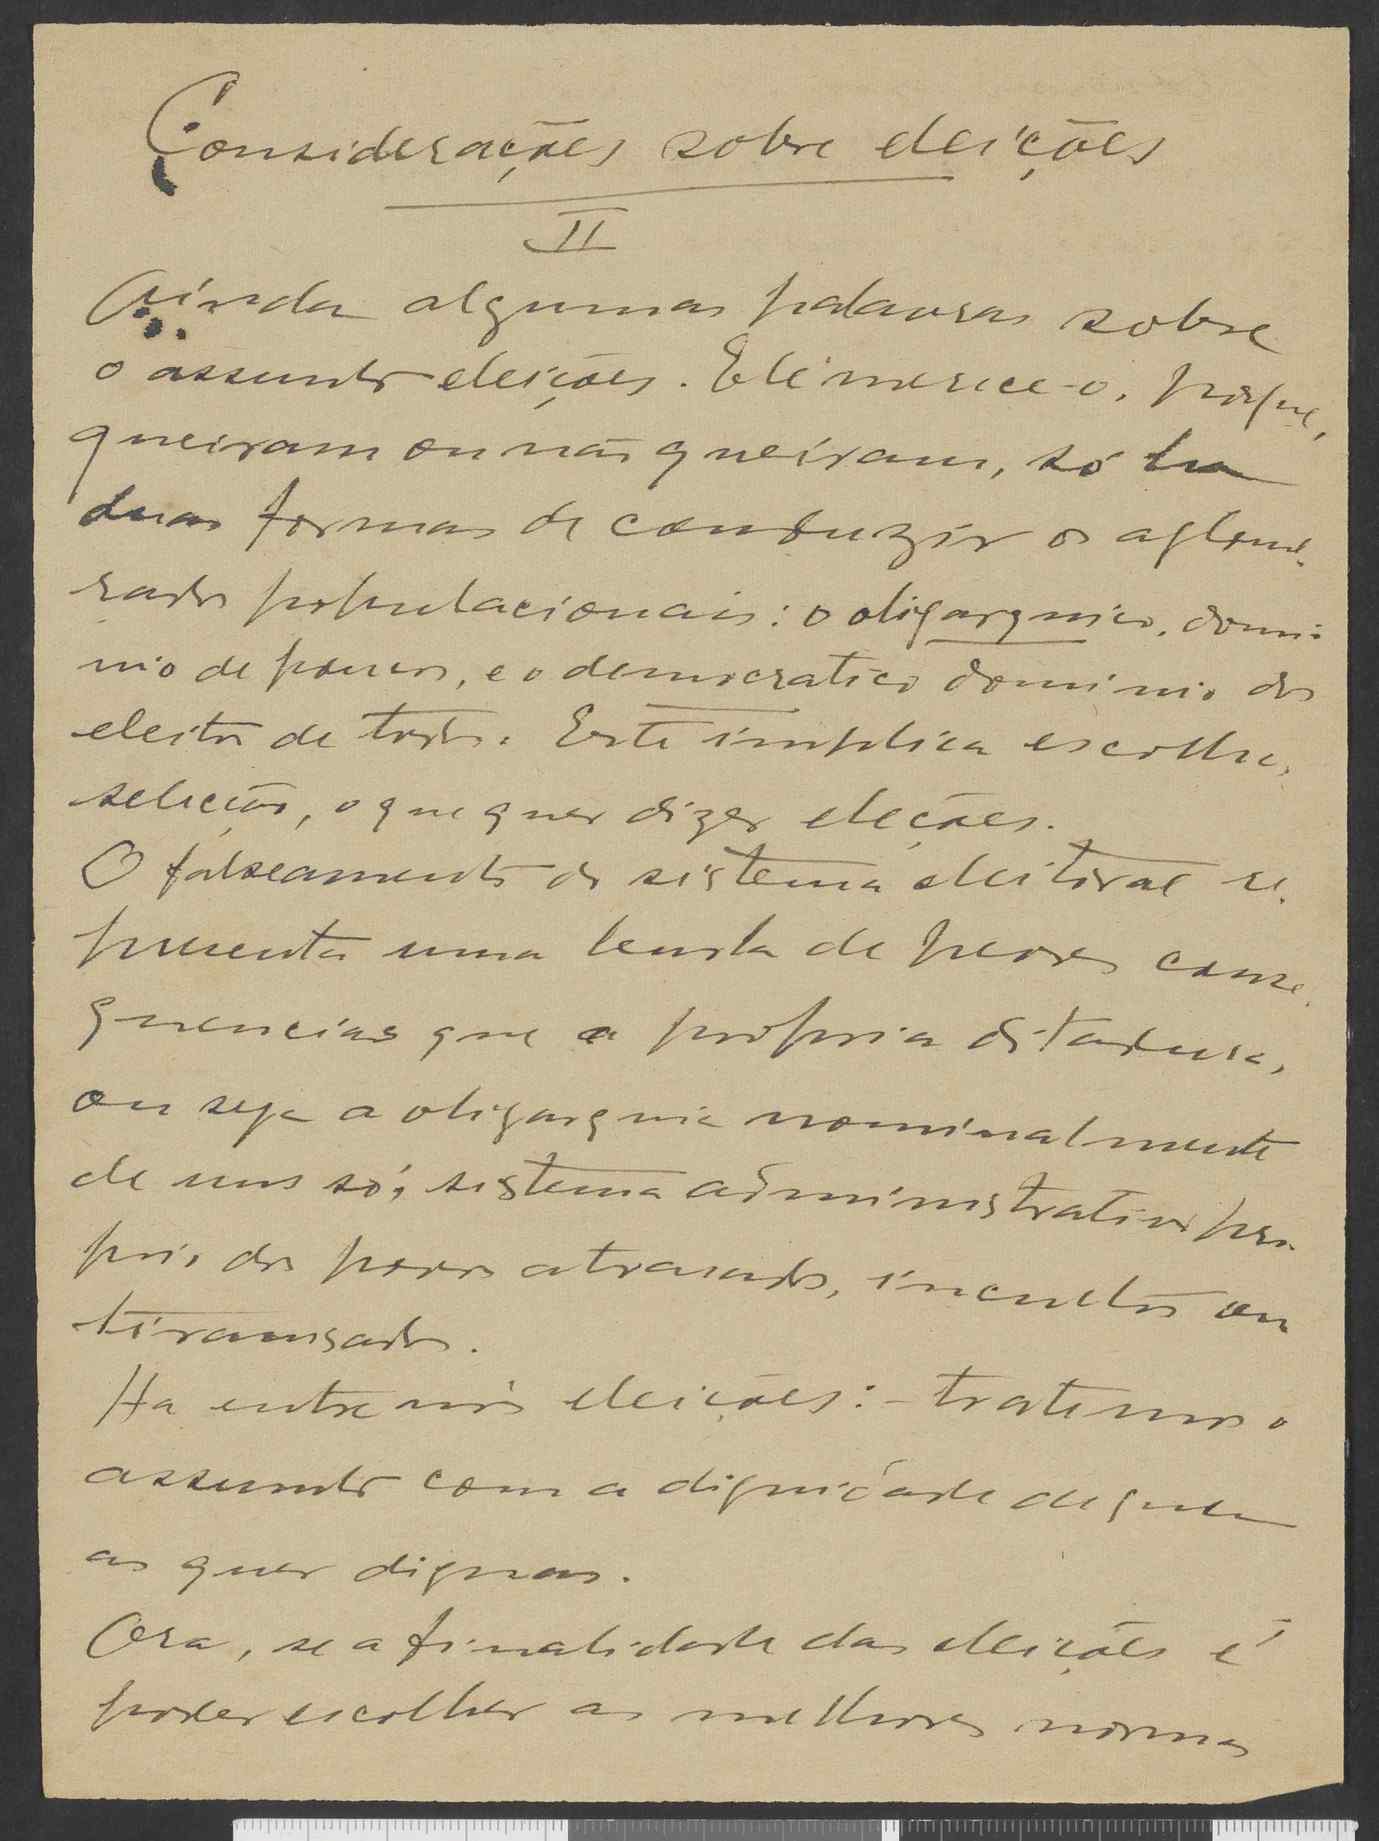 Considerações sobre eleições
II
Ainda algumas palavras sobre
o assunto eleições. Ele merece-o, porque,
queiram ou não queiram, só ha
duas formas de conduzir os aglome-
rados populacionais: o oligarquico, domi-
nio de poucos, e o democratico dominio dos
eleitos de todos. Este implica escolha,
seleção, o que quer dizer eleções.
O falseamento do sistema eleitoral re-
presenta uma burla de peores conse-
quencias que a propria ditadura,
ou seja a oligarquia nominalmente
de um só, sistema administrativo pro-
prio dos povos atrasados, incultos ou
tiranisados.
Ha entre nós eleições: - tratemos o
assunto com a dignidade de quem
as quer dignas.
Ora, se a finalidade das eleições é
poder escolher as melhores normas